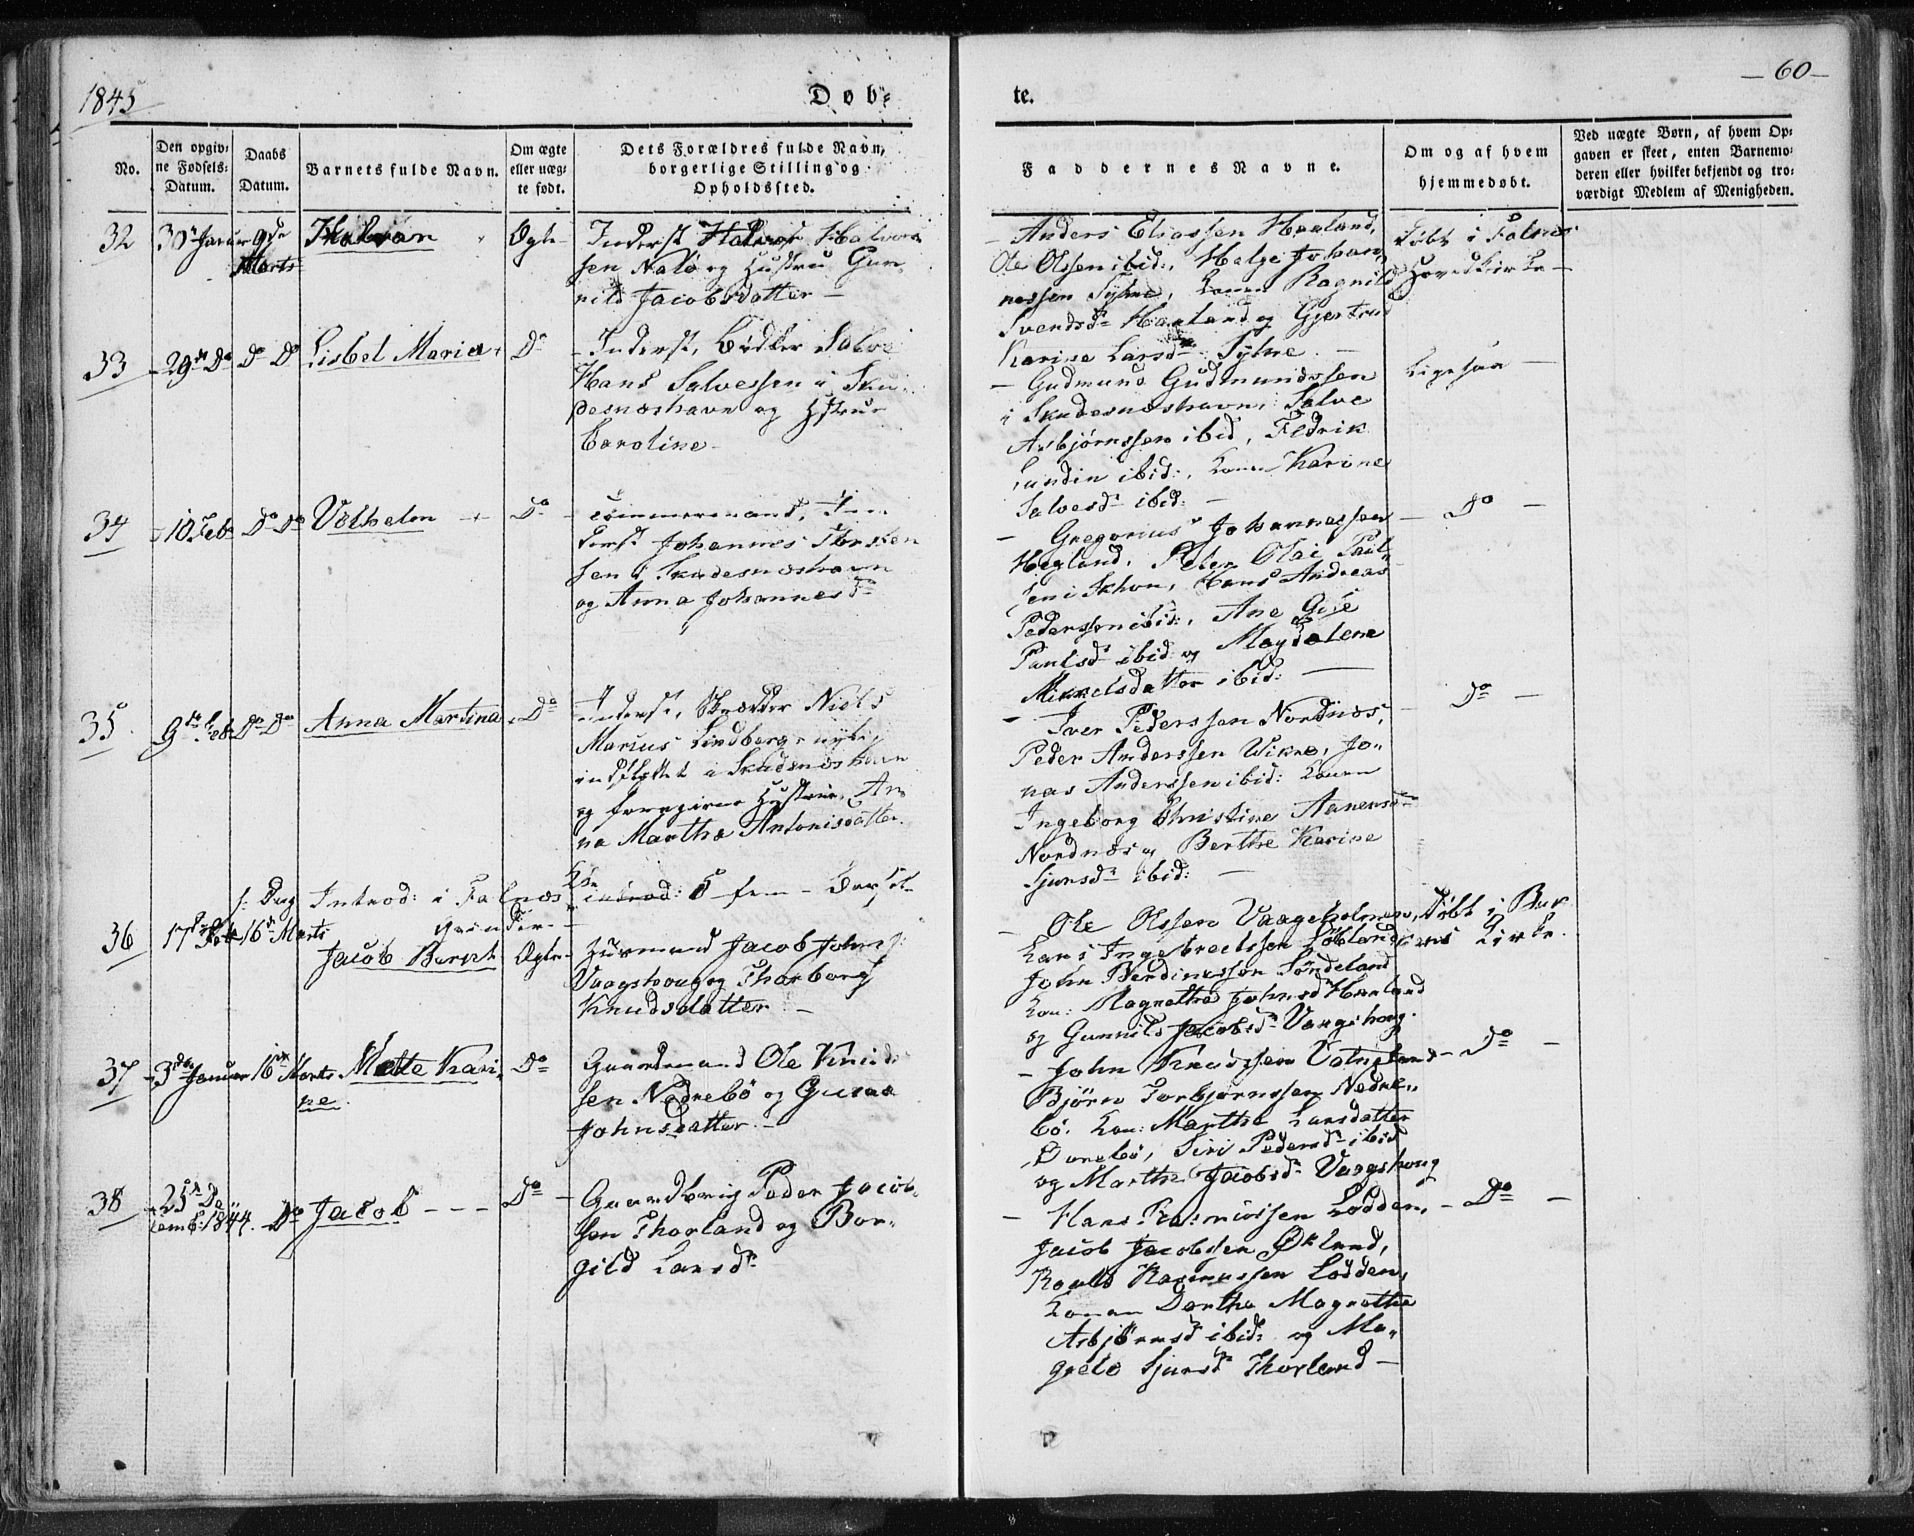 1845
Døb-
te.
— 60 —
No.
Den opgiv-
ne Fødsels-
Datum.
Daabs
Datum.
Barnets fulde Navn.
Om ægte
eller uæg-
te født.
Dets Forældres fulde Navn,
borgerlige Stilling og
Opholdssted.
Faddernes Navne.
Om og af hvem
hjemmedøbt.
Ved uægte Børn, af hvem Op-
gaven er skeet, enten Barnemo-
deren eller hvilket bekjendt og tro-
værdigt Medlem af Menigheden.
32
9de
Marts
Halvor
Ægte
Inderst Halvor Halvor-
sen Nalø og Hustru Gun-
nild Jacobsdatter —
— Anders Eliassen Haaland,
Ole Olssen ibid:, Helge Johan-
nessen Syhre, Konen Ragnild
Svendsd. Haaland og Gjertrud
Karine Larsd. Syhre. —
Døbt i Falnes
Hovedkirke —
33
29de Do
Do Do
Lisbet Maria
Do
— Inderst, Bødker
Hans Salvessen i Sku-
desnæshavn og Hstrue
Caroline —
— Gudmund Gudmundssen
i Skudesnæshavn, Salve
Asbjørnssen ibid, Fedrik
Lundin ibid:, Konen Karine
Salvesd. ibid: —
Ligesaa —
34
10 Feb
Do Do
Vilhelm
Do
Tømmermand, In-
derst Johannes
sen i Skudesnæshavn
og Anna Johannesd.
— Gregorius Johannessen
Hegland, Peder Olai Paul-
sen i Skhvn, Hans Andreas
Pederssen ibid:, Ane
Paulsd. ibid: og Magdalene
Mikkelsdatter ibid: —
— Do —
35
9de Feb
Do Do
Anna Martina
Do
Inderst, Skrædder Niels
Marius Lindberg nylig
indflyttet i Skudesnæshavn
og foregiven Hustrue, An-
na Martha Antonisdatter.
— Iver Pederssen Nordnæs,
Peder Anderssen Wikre, Jo-
nas Anderssen ibid: Konen
Ingeborg Christine Aanensd.
Nordnæs og Berthe Karine
Sjursd. ibid: —
Do —
s. Dag Introd: i Falnæs
introd: 5 fem —
36
16de Marts
Jacob Bernt
Ægte
Huusmand Jacob Johns:
Vaagshoug og Thorborg
Knudsdatter —
— Ole Olssen Vaageholmen,
Lars Ingebrectssen
John Søndeland
Kon: Magnethe Johnsd Haaland
og Gunnild Jacobsd. Vaagshoug.
Døbt i
Kirke.
37
3die Januar
16de Marts
Mette Kari-
ne.
Do
Gaardmand Ole Knud-
sen Nedrebø og Gurine
Johnsdatter. —
— John Knudssen Vatneland
Bjørn Torbjørnssen Nedre-
bø. Kon: Marthe Larsdatter
Dorebø, Siri Pedersd. ibid
og Marthe Jacobsd. Vaagshoug
— Do —
38
25de De-
cembr: 1844.
Do
Jacob — — —
Do
Gaardbrug Peder Jacob-
sen Thorland og Bor-
gild Larsd.
— Hans Rasmussen Lodden,
Jacob Jacobsen Økland,
Roald Rasmussen Lodden,
Konen Dorthe Magrethe
Asbjørnsd ibid: og Ma-
grete Sjursd. Thorland —
— Do —